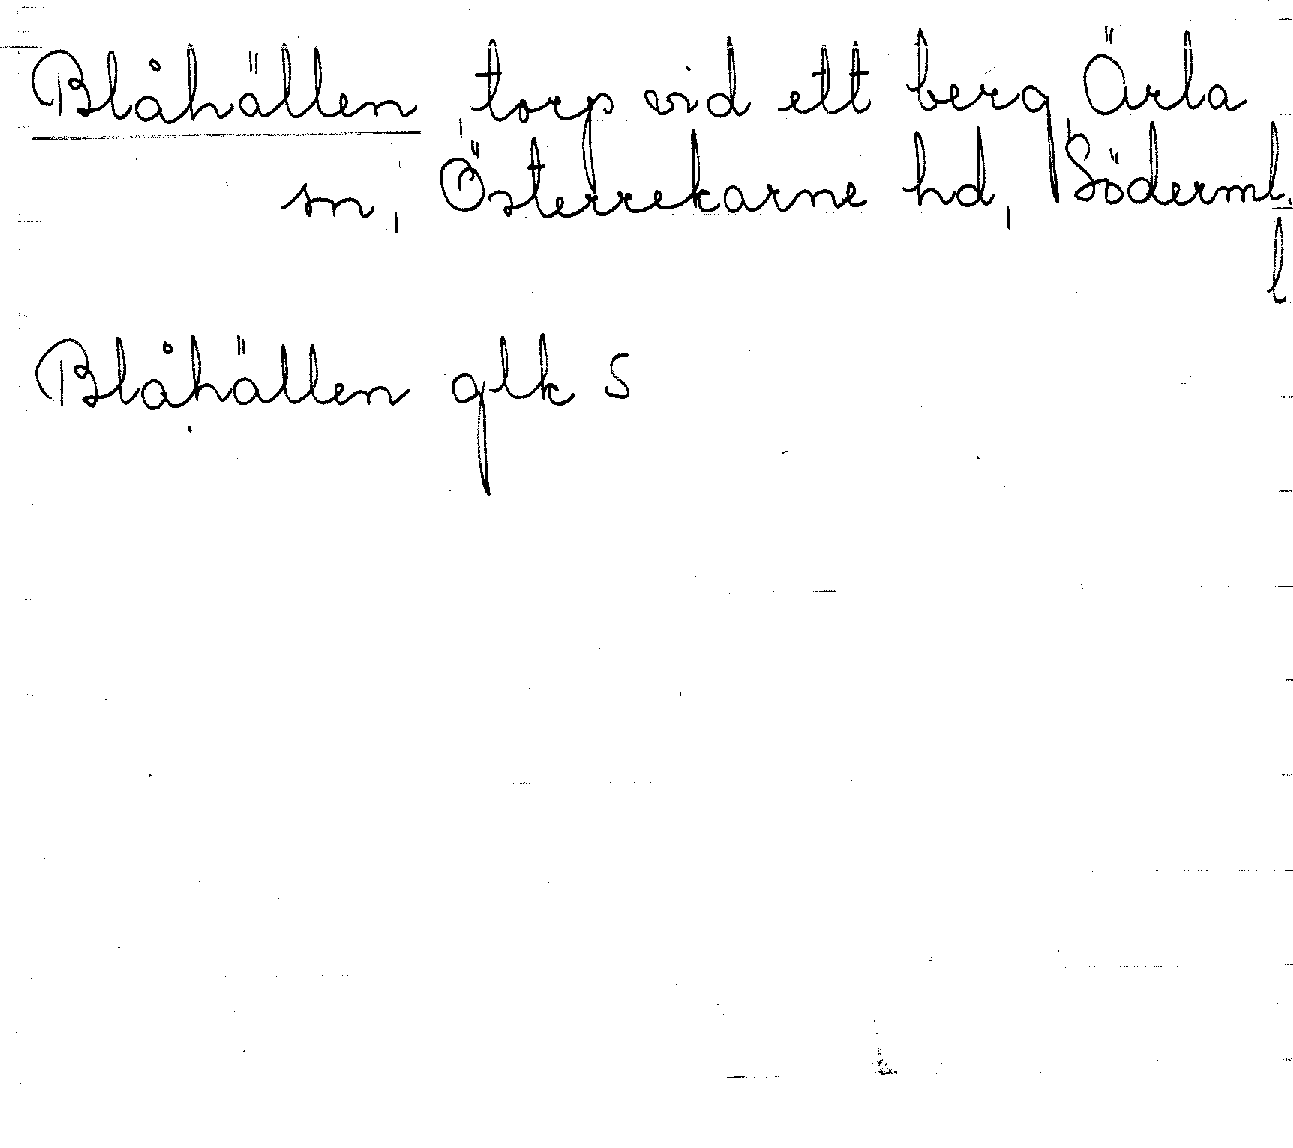 Blåhällen torp vid ett berg Ärla
sn, Österrekarne hd, Söderml.
l
Blåhällen glk S